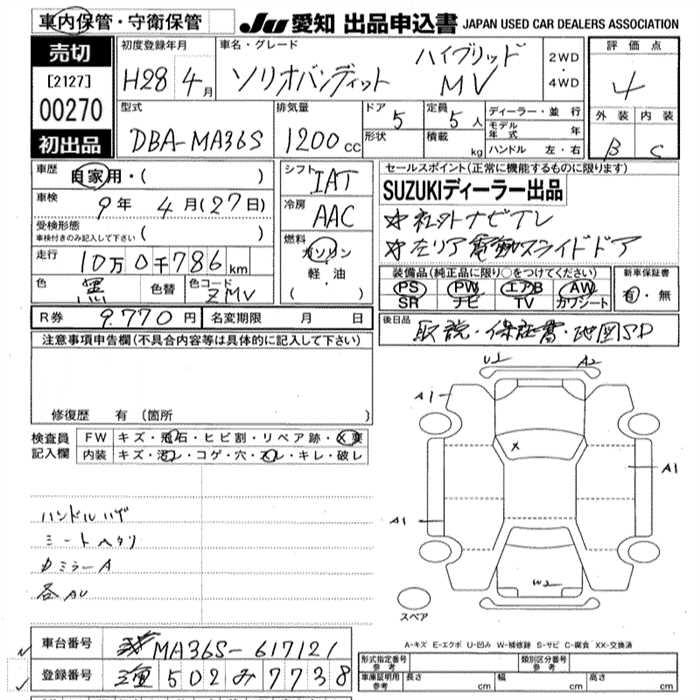 車内保管・守衛保管
JU 愛知 出品申込書 JAPAN USED CAR DEALERS ASSOCIATION
売切
[2127]
00270
初出品
初度登録年月
H28 4月
車名・グレード
ハイブリッド
ソリオバンディット MV
2WD
・
4WD
評価点
4
外装 内装
B C
型式
DBA-MA36S
排気量
1200cc
ドア 5
形状
定員 5人
積載 kg
ディーラー・並行
モデル年式 年
ハンドル 左・右
車歴 自家用・( )
車検 9年 4月(27日)
受検形態
車検付きのみ記入して下さい ( )
走行 10万0千786km
色 黒 色替 色コード ZMV
シフト IAT
冷房 AAC
燃料
ガソリン
軽・油
( )
セールスポイント(正常に機能するものに限ります)
SUZUKIディーラー出品
☆社外ナビTV
☆左リア電動スライドドア
装備品(純正品に限り○をつけてください)
PS PW エアB AW
SR ナビ TV カワシート
新車保証書
有・無
R券 9,770円 名変期限 月 日
後日品 取説・保証書・地図SD
注意事項申告欄(不具合内容等は具体的に記入して下さい)
修復歴 有 (箇所 )
検査員記入欄
FW キズ・飛石・ヒビ割・リペア跡・X要
内装 キズ・汚レ・コゲ・穴・スレ・キレ・破レ
ハンドルハゲ
シートヘタリ
カミラーA
各AU
U2 A2
A1
X
A1
A1
W2
スペア
A-キズ E-エクボ U-凹み W-補修跡 S-サビ C-腐食 XX-交換済
車台番号 MA36S-617121
登録番号 502 み 7738
形式指定番号 参考
類別区分番号 参考
車庫証明用 参考 長さ cm 幅 cm 高さ cm